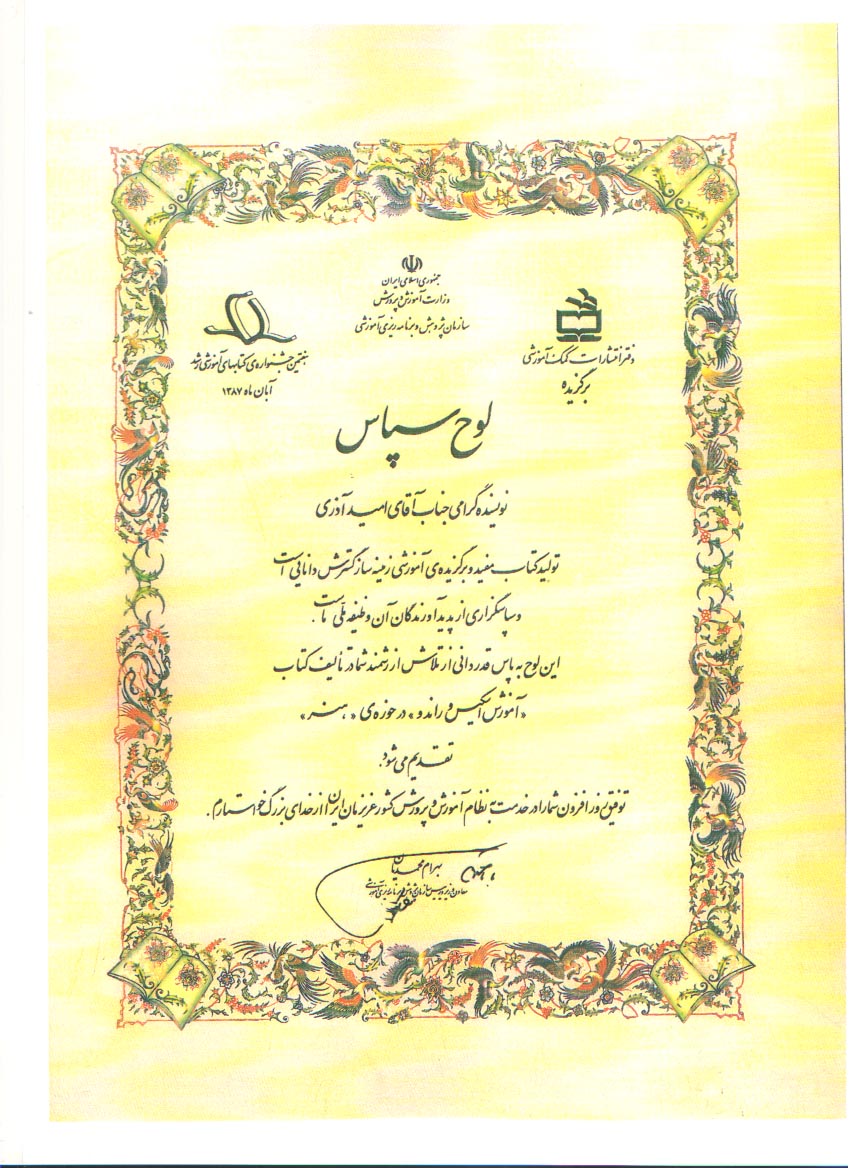 جمهوری اسلامی ایران
وزارت آموزش و پرورش
سازمان پژوهش و برنامه ریزی آموزشی
دفتر انتشارات کمک آموزشی
برگزیده
هفتمین جشنواره‌ی کتابهای آموزشی رشد
آبان ماه ۱۳۸۷
لوح سپاس
نویسنده گرامی جناب آقای امید آذری
تولید کتاب مفید و برگزیده‌ی آموزشی زمینه ساز گسترش دانایی است
و سپاسگزاری از پدیدآورندگان آن وظیفه ملّی ماست.
این لوح به پاس قدردانی از تلاش ارزشمند شما در تألیف کتاب
«آموزش اسکیس و راندو» در حوزه‌ی «هنر»
تقدیم می شود.
توفیق روز افزون شما را در خدمت به نظام آموزش و پرورش کشور عزیزمان ایران از خدای بزرگ خواستارم.
بهرام محمدیان
معاون وزیر و رییس سازمان پژوهش و برنامه ریزی آموزشی